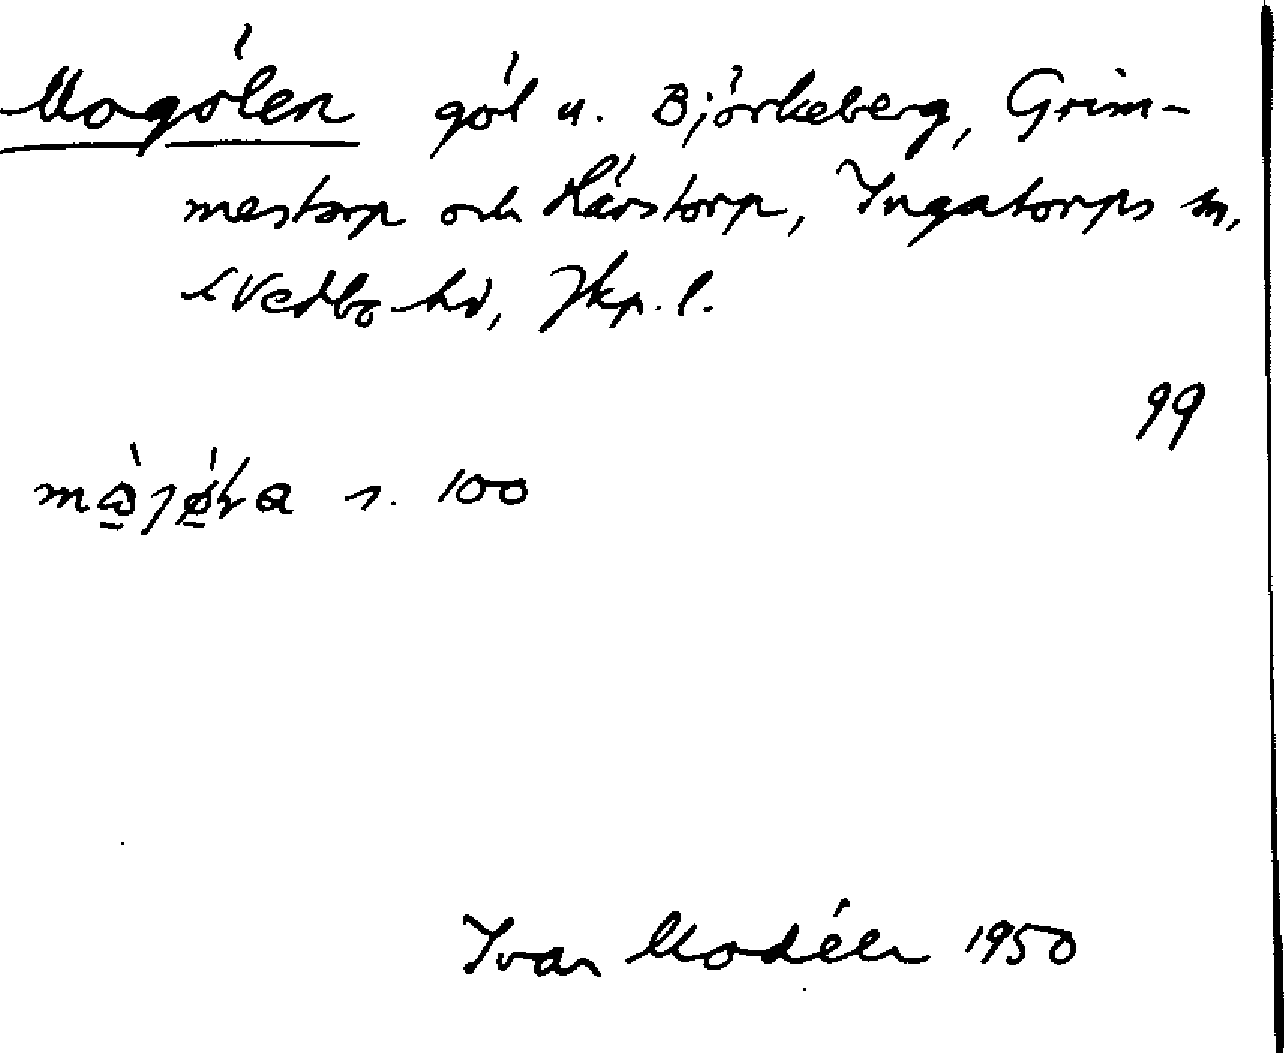 Mogölen göl u. Björkeberg, Grim-
mestorp och Hårstorp, Ingatorps sn,
S Vedbo hd, Jkp. l.
99
s. 100
Ivar Modéer 1950